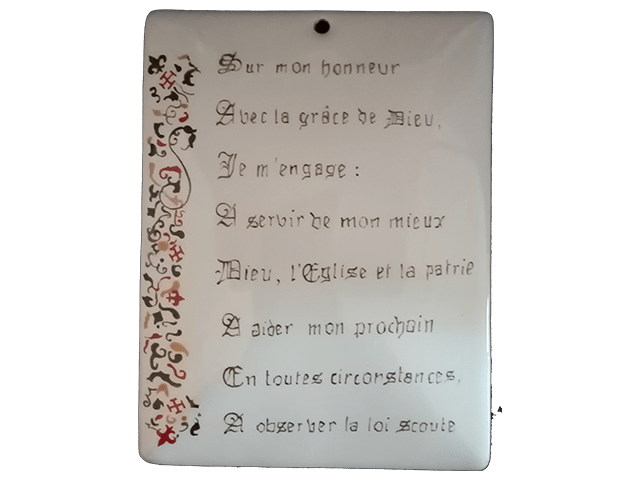 Sur mon honneur
Avec la grâce de Dieu,
Je m'engage :
A servir de mon mieux
Dieu, l'Eglise et la patrie
A aider mon prochain
En toutes circonstances,
A observer la loi scoute